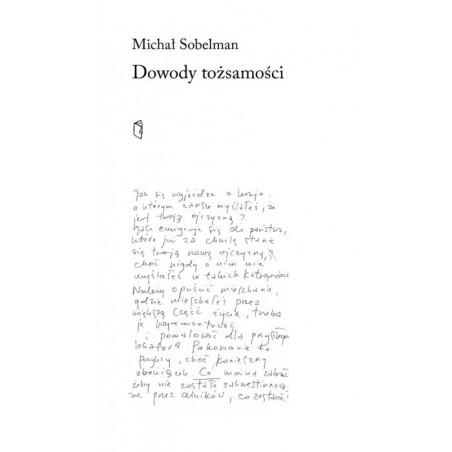 Michał Sobelman
Dowody tożsamości
Jak się wyjeżdża z kraju,
o którym zawsze myślałeś, że
jest twoją ojczyzną?
Jak emigruje się do państwa,
które już za chwilę stanie
się twoją nową ojczyzną,
choć nigdy o nim nie
myślałeś w takich kategoriach
Należy opuścić mieszkanie,
gdzie mieszkałeś przez
większą część życia, trzeba
je wyremontować
i pomalować dla przyszłego
lokatora Pakowanie to
przykry, choć konieczny
obowiązek Co można zabrać
żeby nie zostało zakwestionowa-
ne przez celników, co zostawić